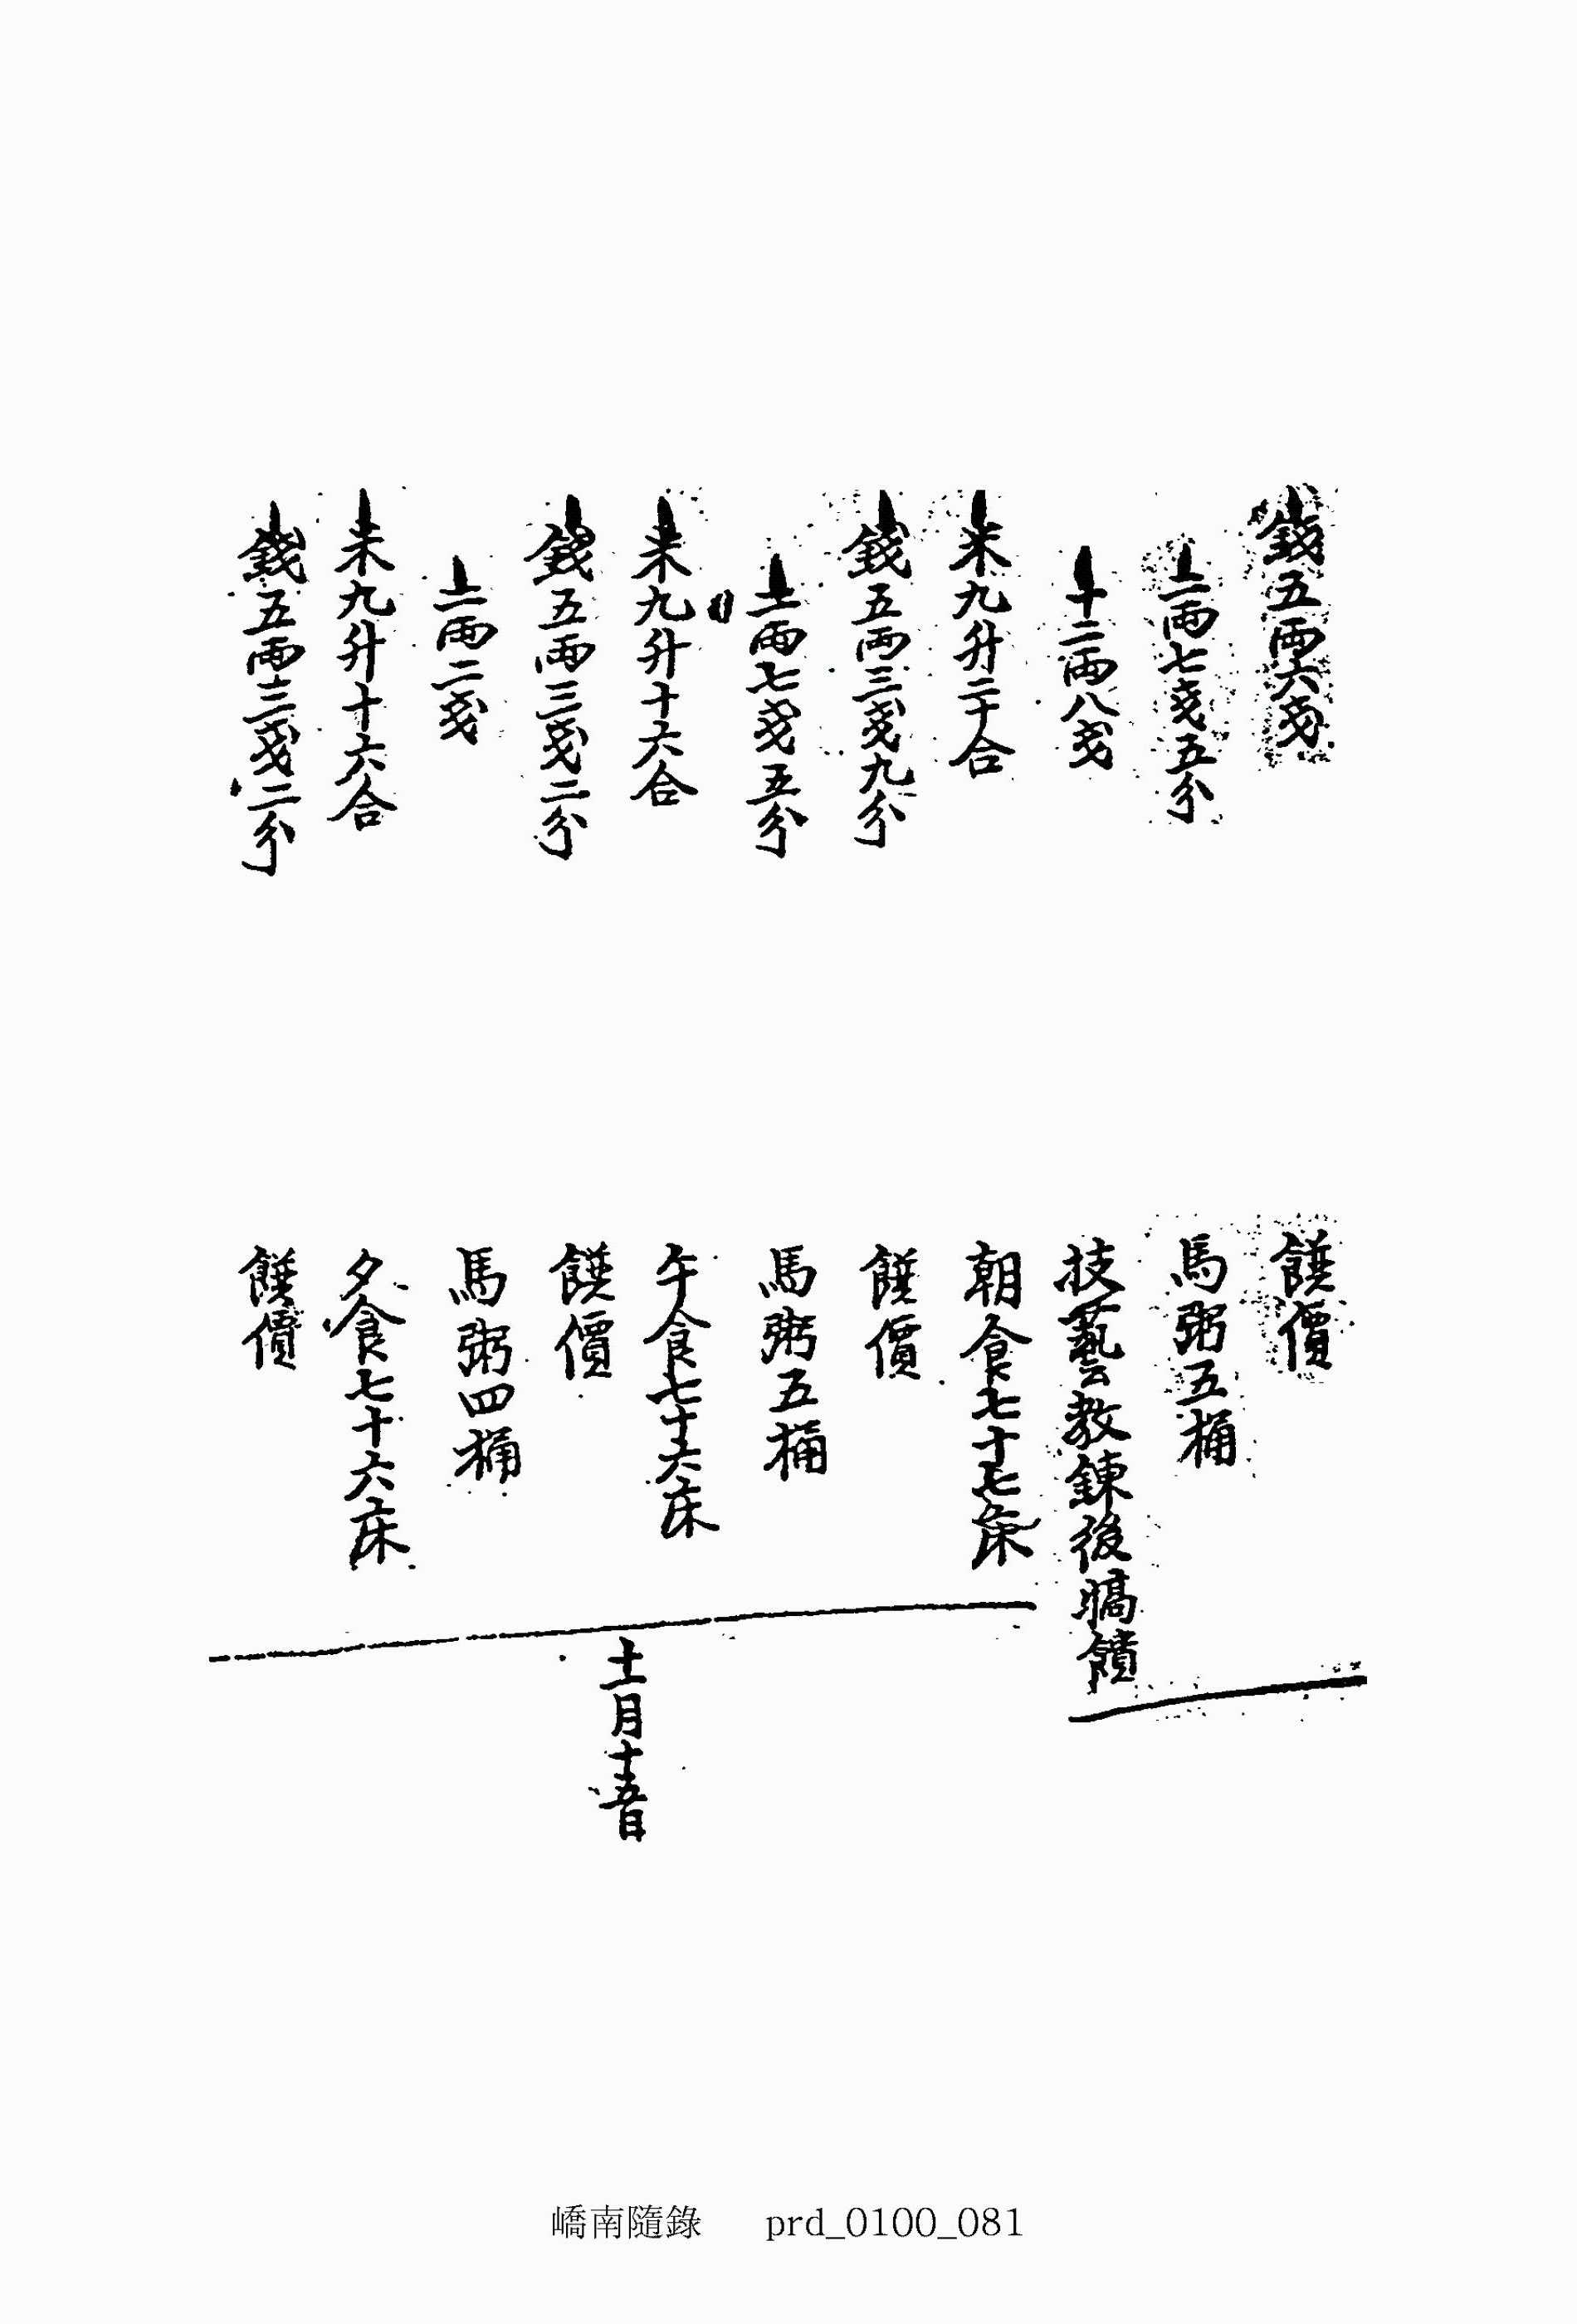 錢五兩六戔 饌價
二兩七戔五分 馬粥五桶
十二兩八戔 技藝教鍊後犒饋
米九升二十合 朝食七十七床
錢五兩三戔九分 饌價
二兩七戔五分 馬粥五桶
米九升十六合 午食七十六床
錢五兩三戔二分 饌價
二兩二戔 馬粥四桶
米九升十六合 夕食七十六床
錢五兩三戔二分 饌價
十一月十五日
嶠南隨錄 prd_0100_081